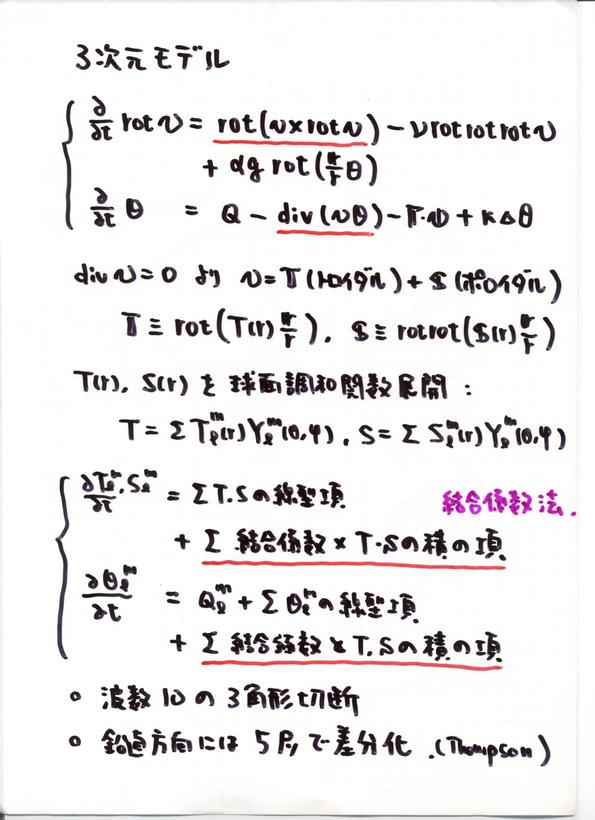 3次元モデル
∂/∂t rot v = rot(v×rot v) − ν rot rot rot v
+ αg rot(r/r θ)
∂/∂t θ = Q − div(vθ) − Γ·v + κΔθ
div v = 0 より v = T(トロイダル) + S(ポロイダル)
T ≡ rot(T(r) r/r), S ≡ rotrot(S(r) r/r)
T(r), S(r) を 球面調和関数展開:
T = Σ Tₗᵐ(r)Yₗᵐ(θ,φ), S = Σ Sₗᵐ(r)Yₗᵐ(θ,φ)
∂Tₗᵐ,Sₗᵐ/∂t = Σ T,Sの線型項
結合係数法.
+ Σ 結合係数 × T·Sの積の項
∂θₗᵐ/∂t = Qₗᵐ + Σ θₗᵐの線型項
+ Σ 結合係数 × T,Sの積の項
○ 波数10の3角形切断
○ 鉛直方向には 5 で差分化.(Thompson)